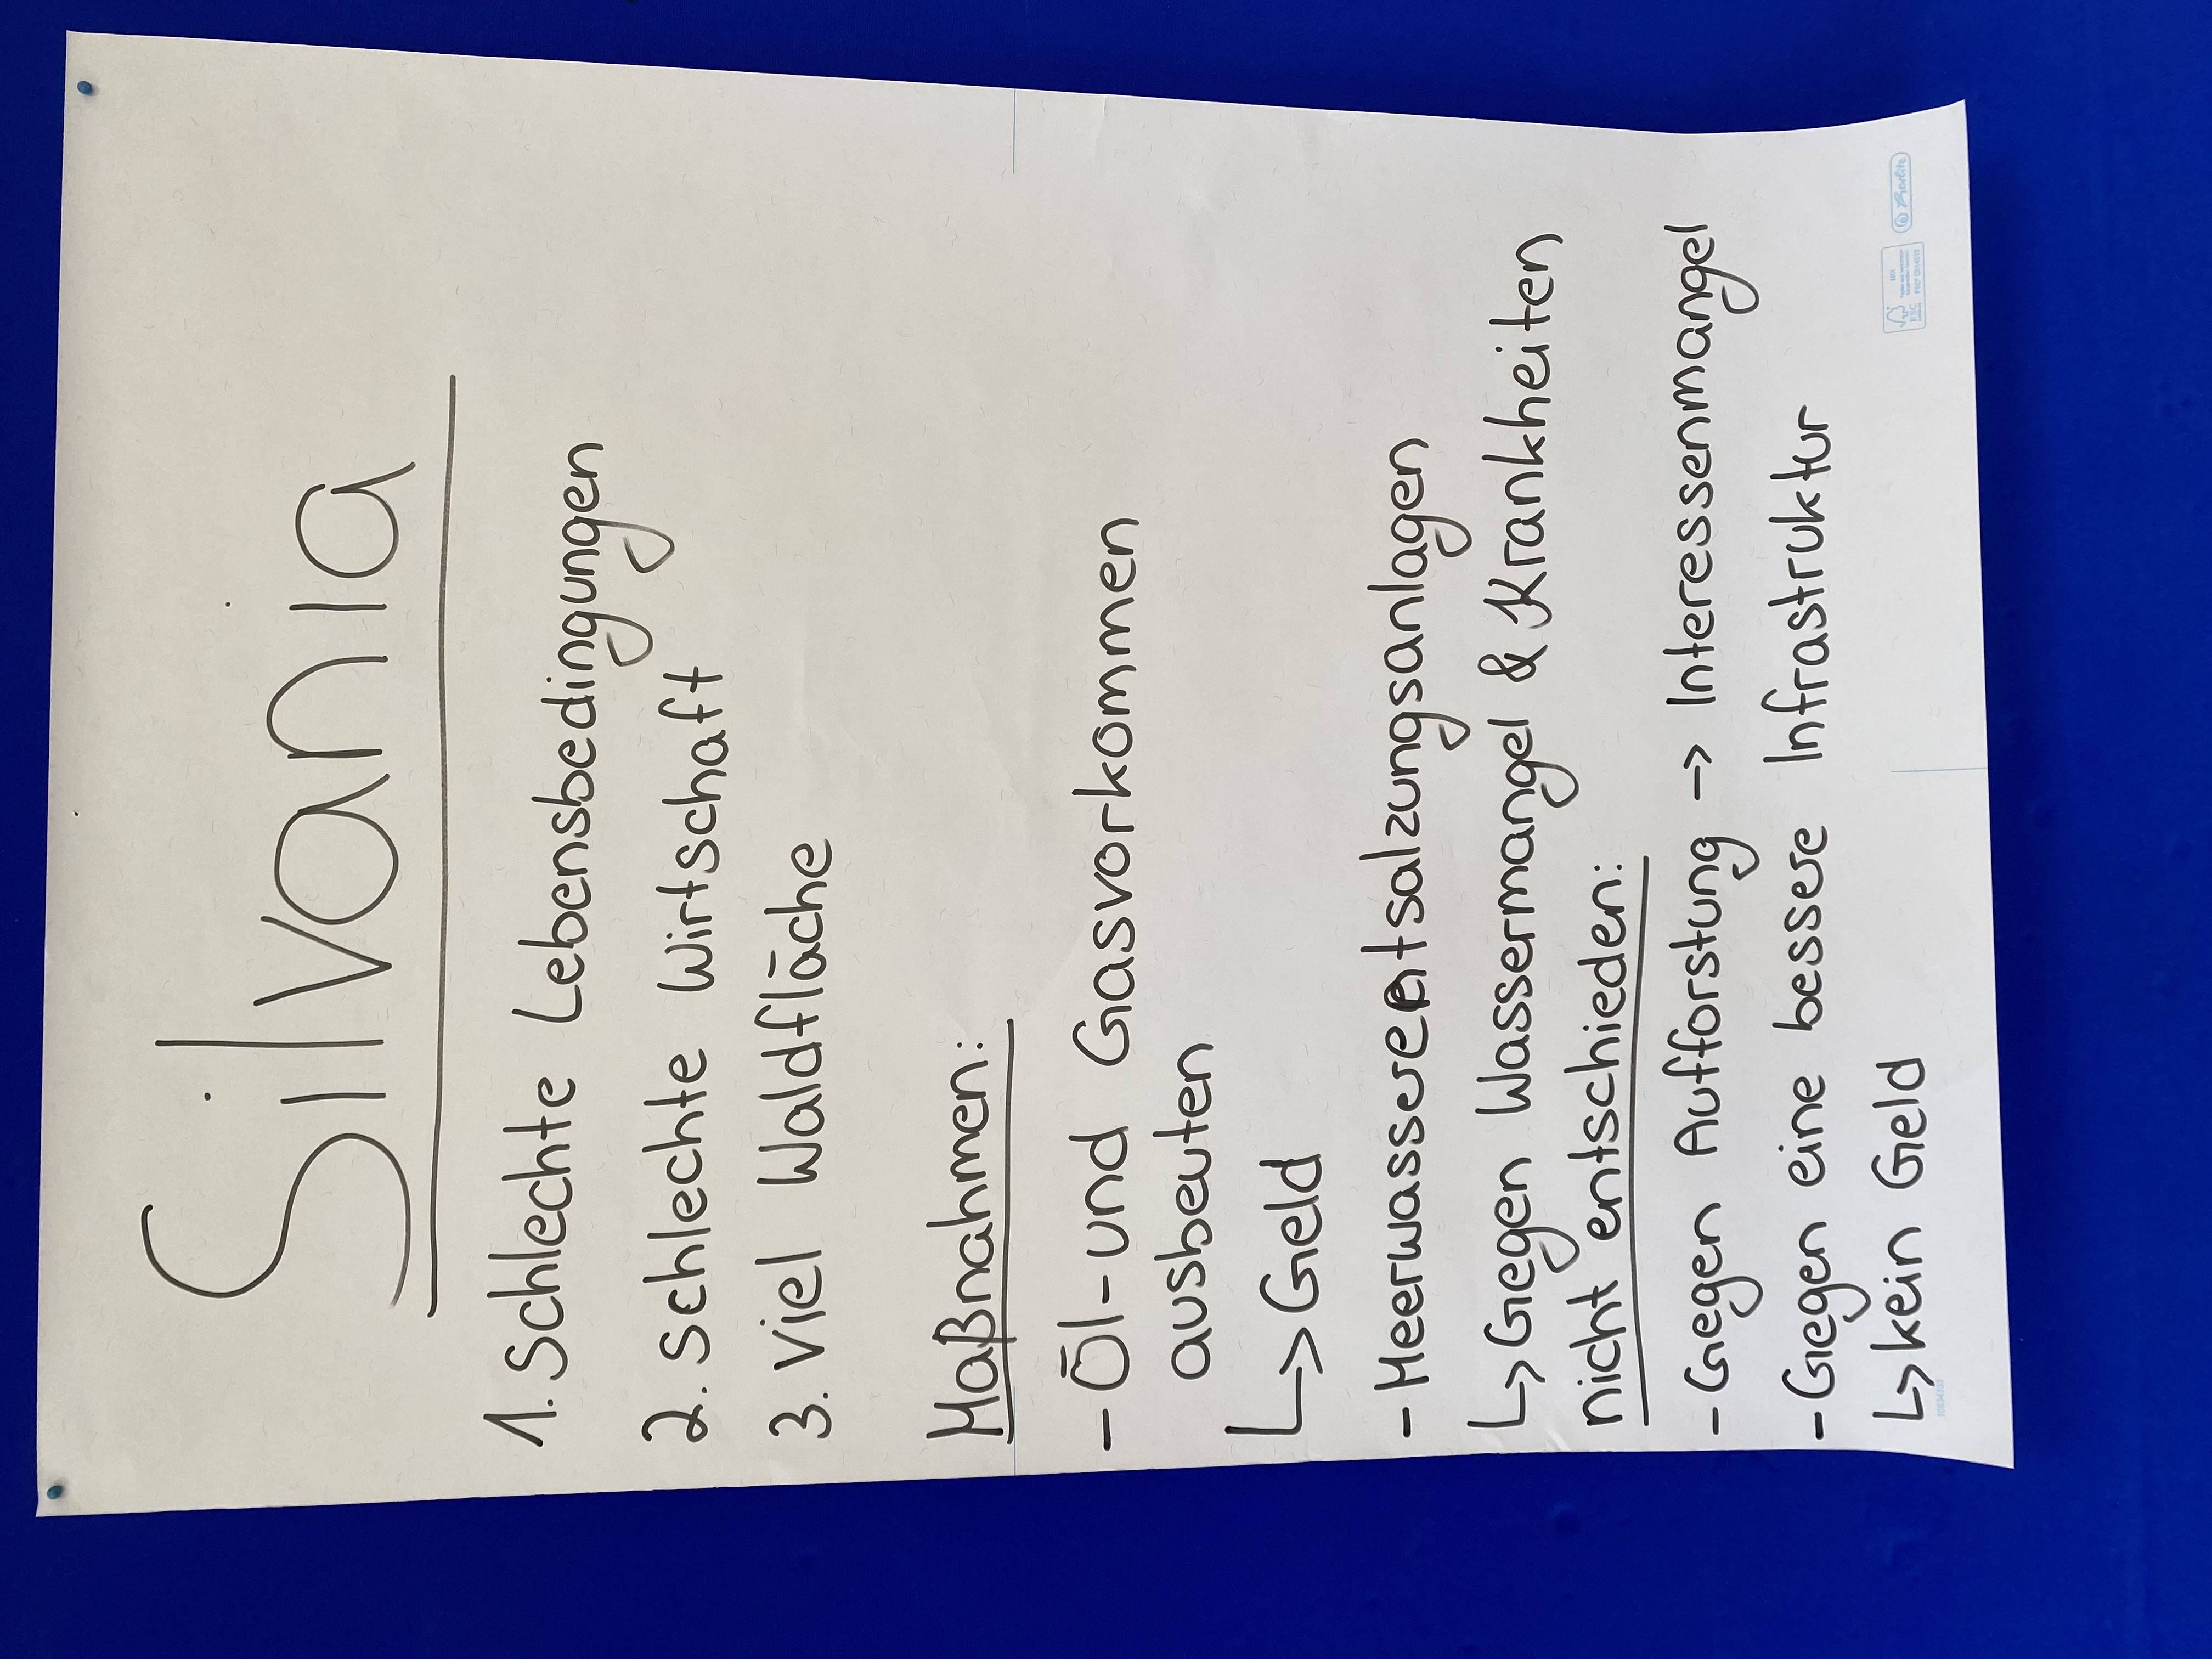 Silvania
1. Schlechte Lebensbedingungen
2. schlechte Wirtschaft
3. Viel Waldfläche
Maßnahmen:
- Öl- und Gasvorkommen
ausbeuten
↳ Geld
- Meerwasserentsalzungsanlagen
↳ Gegen Wassermangel & Krankheiten
nicht entschieden:
- Gegen Aufforstung -> Interessenmangel
- Gegen eine bessere Infrastruktur
↳ kein Geld
MIX
FSC
Berlitz